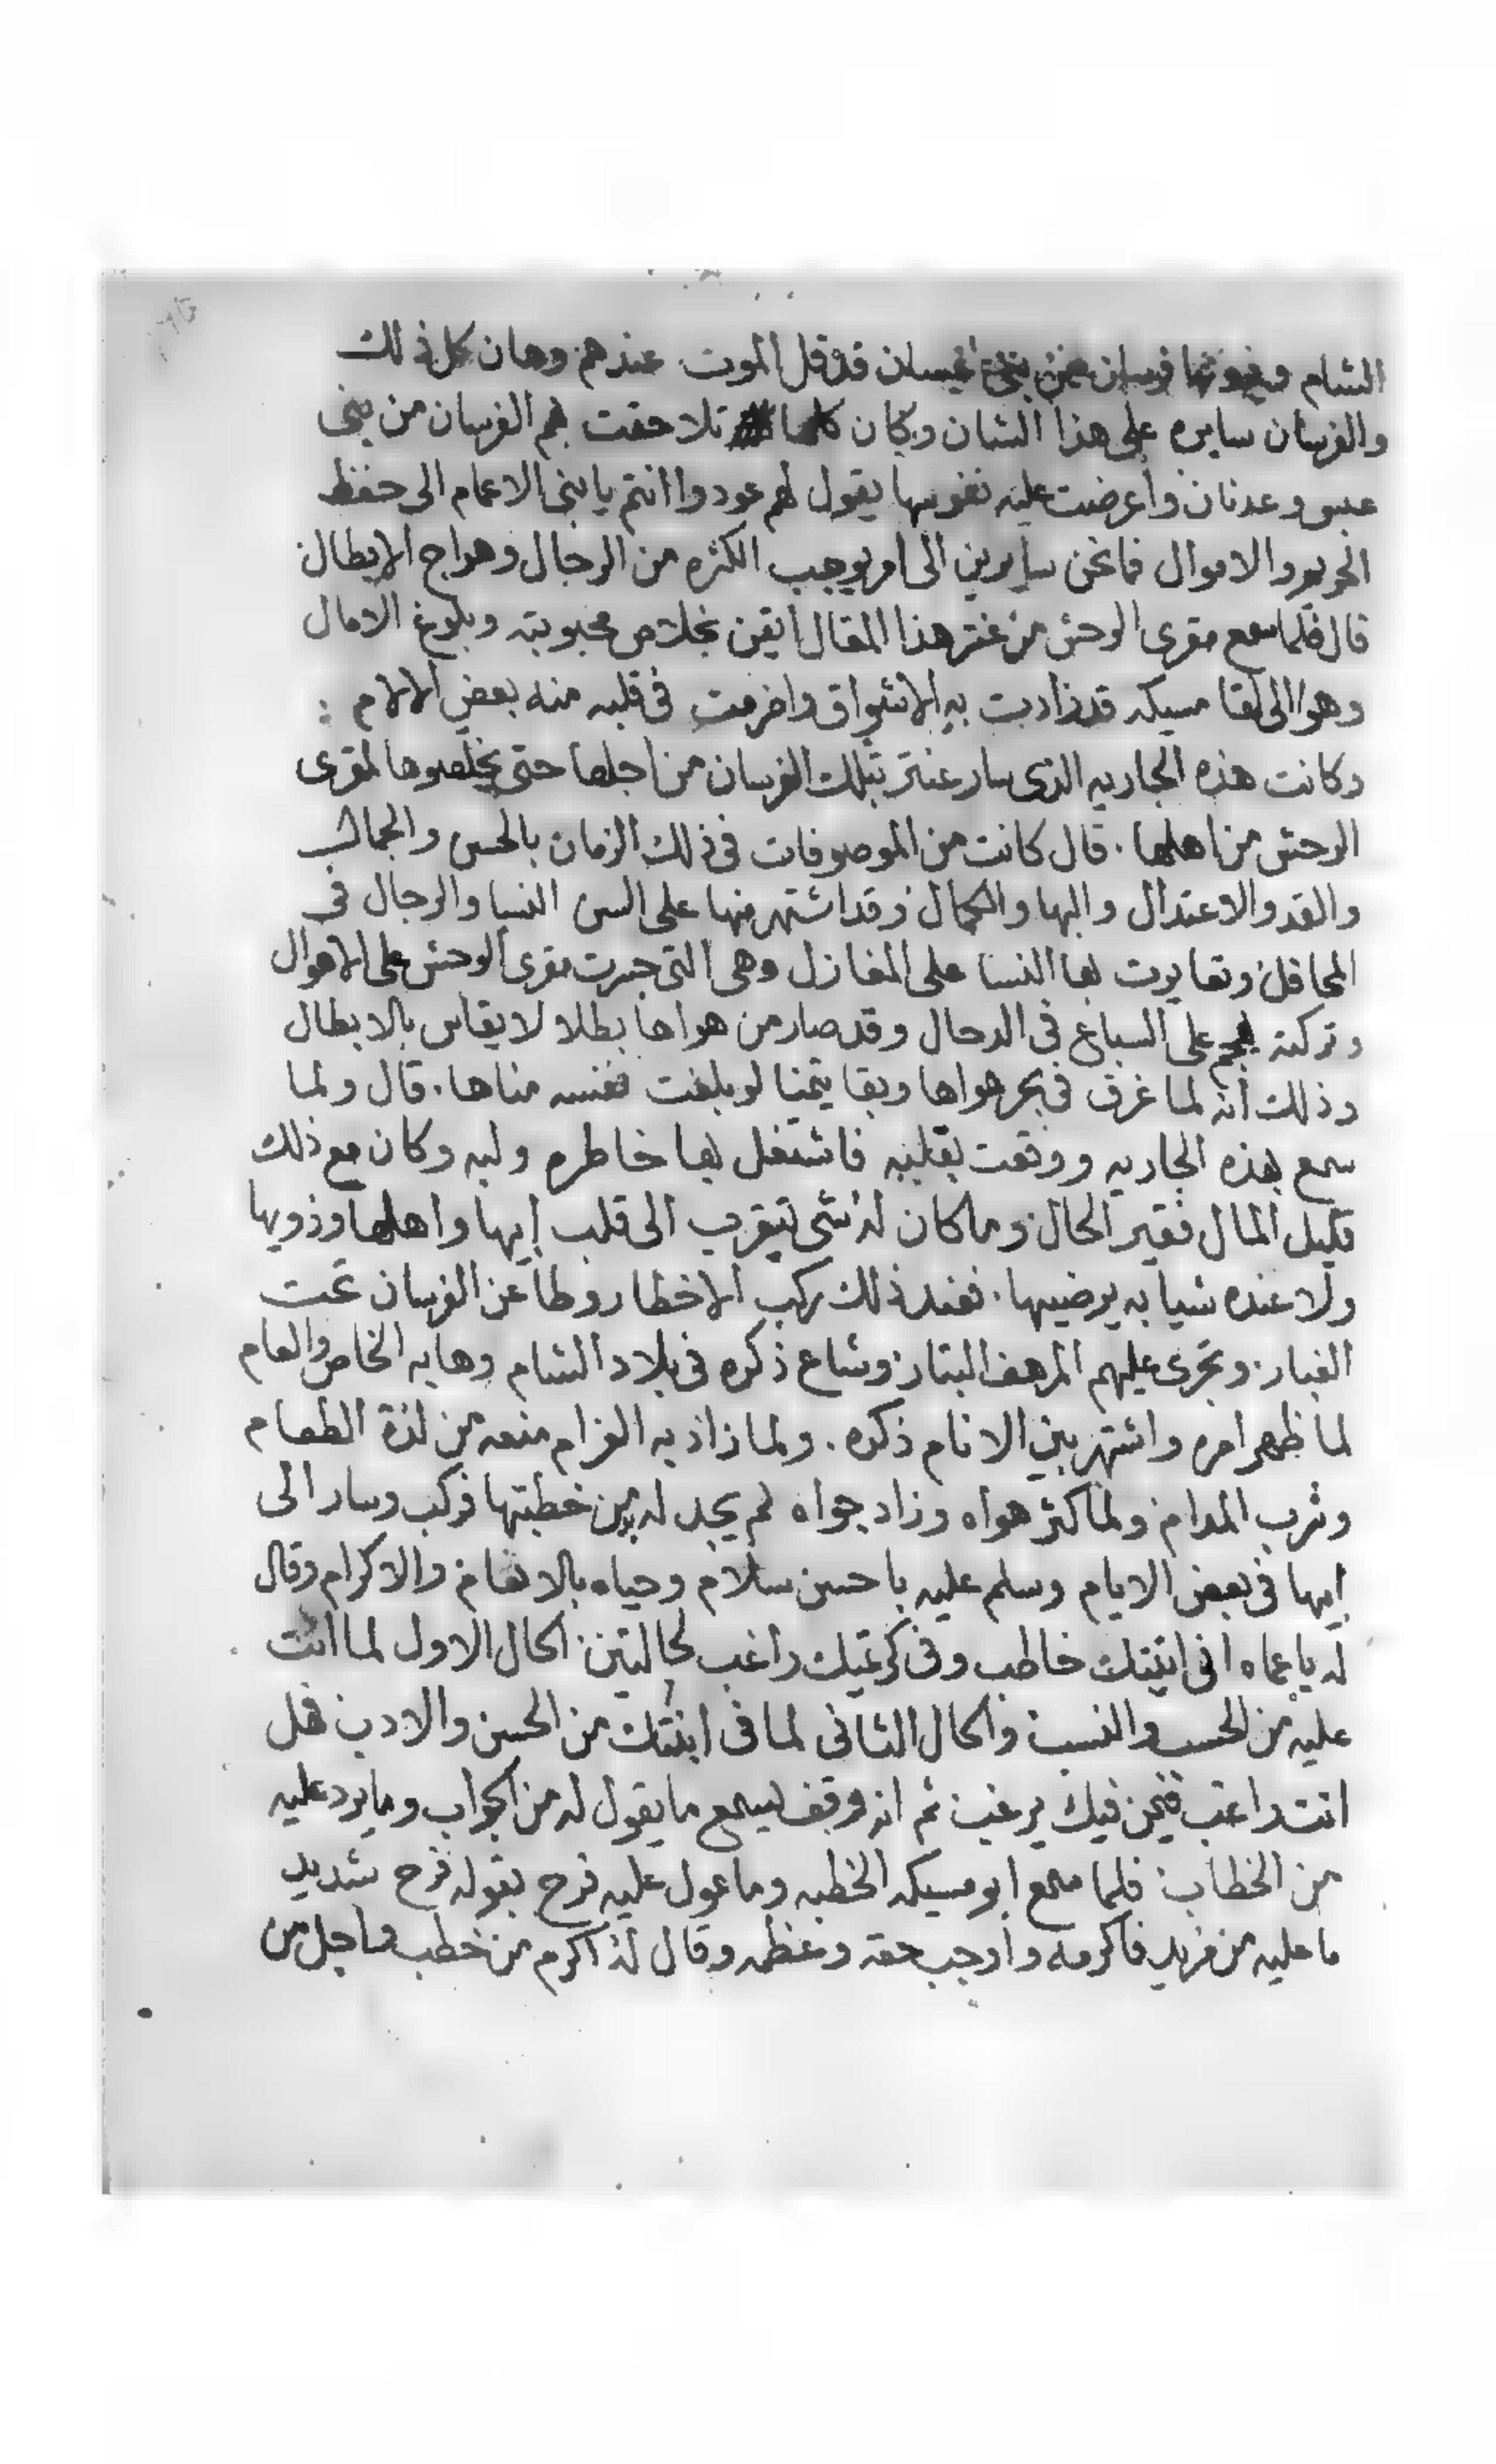 الشام وفيها فرسان من بنى غسان قد قل الموت عندهم وهان كل ذلك
والفرسان سايره على هذا الشان وكان كلما تلاحقت بهم الفرسان من بنى
عبس وعدنان واعرضت عليه نفوسها يقول لهم عودوا انتم يا بنى الاعمام الى حفظ
الحريم والاموال فما نحن سايرين الى امر يوجب الكثره من الرجال وهواج الابطال
قال فلما سمع مقرى الوحش من عنتر هذا المقال ايقن بخلاص محبوبته وبلوغ الامال
وهو الى لقا مسيكه قد زادت به الاشواق واضرمت فى قلبه منه بعض الالام
وكانت هذه الجاريه الذى سار عنتر بتلك الفرسان من اجلها حتى يخلصوها لمقرى
الوحش من اهلها . قال كانت من الموصوفات فى ذلك الزمان بالحسن والجمال
والقد والاعتدال والبها والكمال وقد اشتهر منها على السن النسا والرجال فى
المحافل وتعايرت بها النسا على المغازل وهى التى جسرت مقرى الوحش على الاهوال
وتركته يهجم على السباع فى الدحال وقد صار من هواها بطلا لا يقاس بالابطال
وذلك انه لما غرق فى بحر هواها وبقا يتمنا لو بلغت نفسه مناها . قال ولما
سمع بهذه الجاريه ووقعت بقلبه فاشتغل بها خاطره ولبه وكان مع ذلك
قليل المال فقير الحال وما كان له شى يتقرب الى قلب ابيها واهلها وذويها
ولا عنده شيا به يرضيها . فعند ذلك ركب الاخطار وطاعن الفرسان تحت
الغبار وتجرى عليهم المرهف البتار وشاع ذكره فى بلاد الشام وهابه الخاص والعام
لما ظهر امره واشتهر بين الانام ذكره . ولما زاد به الغرام منعه من لذة الطعام
وشرب المدام ولما كثر هواه وزاد جواه لم يجد له بد من خطبتها فركب وسار الى
ابيها فى بعض الايام وسلم عليه باحسن سلام وحياه بالانعام والاكرام وقال
له يا عماه انى ابنتك خاطب وفى كرمتيك راغب لحالتين الحال الاول لما انت
عليه من الحسب والنسب والحال الثانى لما فى ابنتك من الحسن والادب فهل
انت راغب فيمن فيك يرغب ثم انه وقف ليسمع ما يقول له من الجواب وما يرد عليه
من الخطاب فلما سمع ابو مسيكه الخطبه وما عول عليه فرح بقوله فرح شديد
ما عليه من مزيد فاكرمه واوجب حقه وعظمه وقال له اكرم من خطب واجل من